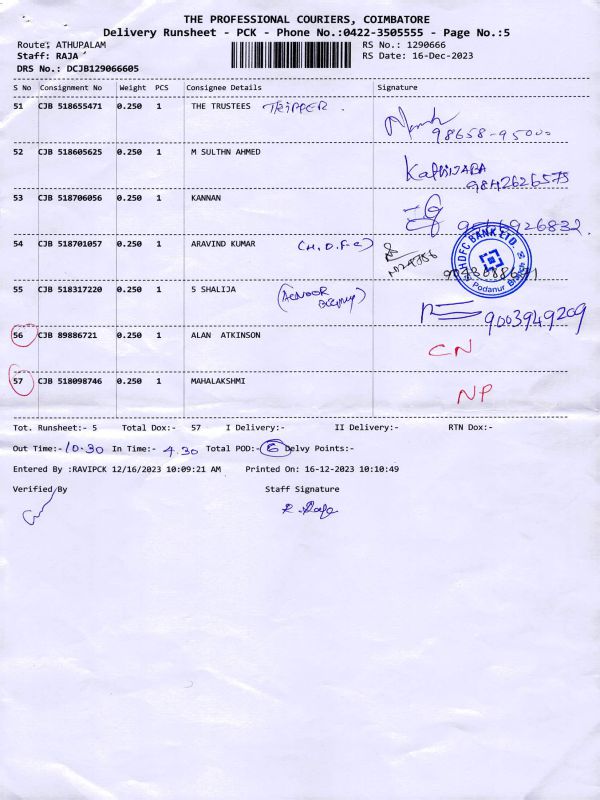 THE PROFESSIONAL COURIERS, COIMBATORE
Delivery Runsheet - PCK - Phone No.:0422-3505555 - Page No.:5
Route: ATHUPALAM RS No.: 1290666
Staff: RAJA RS Date: 16-Dec-2023
DRS No.: DCJB129066605
S No Consignment No Weight PCS Consignee Details Signature
51 CJB 518655471 0.250 1 THE TRUSTEES TRIPPER.
98658-95000
52 CJB 518605625 0.250 1 M SULTHN AHMED
9842626575
53 CJB 518706056 0.250 1 KANNAN
54 CJB 518701057 0.250 1 ARAVIND KUMAR (H.D.F.C)
HDFC BANK LTD.
Podanur Branch
55 CJB 518317220 0.250 1 S SHALIJA
9003949209
56 CJB 89886721 0.250 1 ALAN ATKINSON CN
57 CJB 518098746 0.250 1 MAHALAKSHMI NP
Tot. Runsheet:- 5 Total Dox:- 57 I Delivery:- II Delivery:- RTN Dox:-
Out Time:- 10.30 In Time:- 4.30 Total POD:- 6 Delvy Points:-
Entered By :RAVIPCK 12/16/2023 10:09:21 AM Printed On: 16-12-2023 10:10:49
Verified By Staff Signature